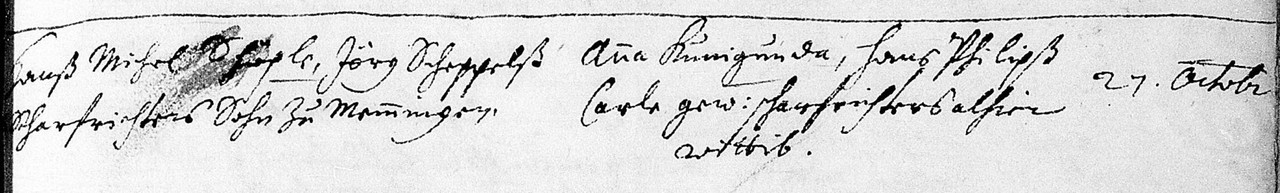 Hanß Michel Schöple, Jörg Scheppelß
Scharfrichters Sohn zu Memingen.
Anna Kunigunda, Hans Philipß
Carle gew: scharfrichters alhier
wittib.
27. Octobr